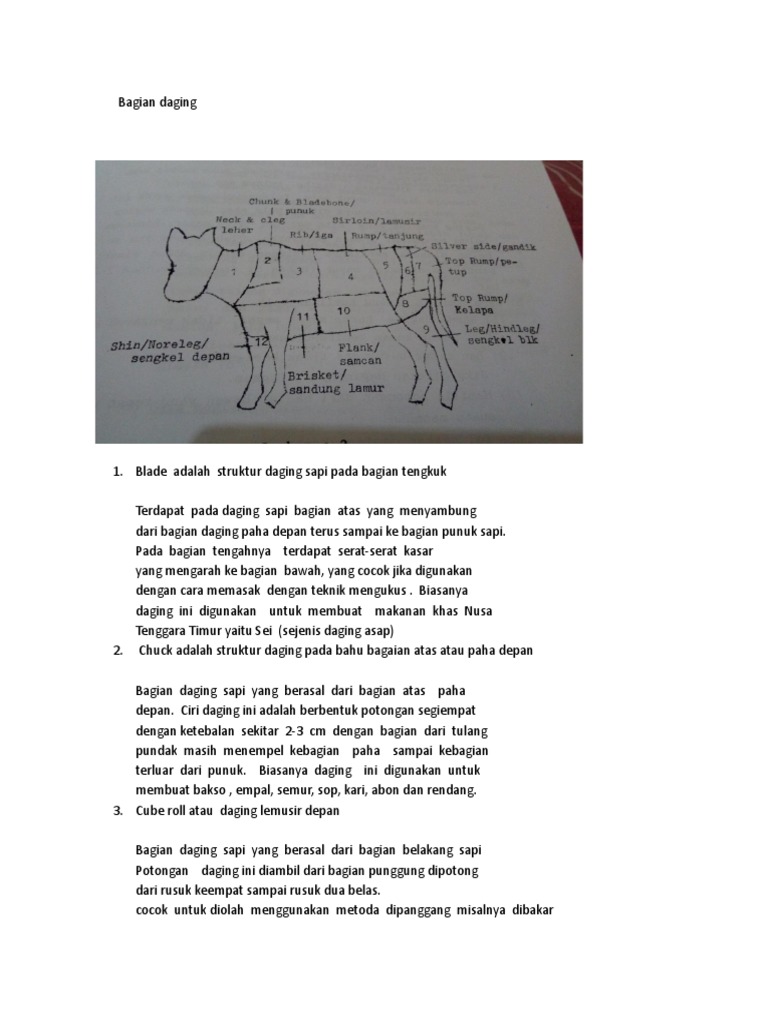 Bagian daging
Chunk & Bladebone/
punuk
Neck & cleg
leher
Sirloin/lamusir
Rib/iga
Rump/tanjung
Silver side/gandik
Top Rump/pe-
tup
1
2
3
4
5
6
7
8
Top Rump/
Kelapa
9
Leg/Hindleg/
sengkel blk
10
11
12
Shin/Noreleg/
sengkel depan
Flank/
samcan
Brisket/
sandung lamur
1. Blade adalah struktur daging sapi pada bagian tengkuk
Terdapat pada daging sapi bagian atas yang menyambung
dari bagian daging paha depan terus sampai ke bagian punuk sapi.
Pada bagian tengahnya terdapat serat-serat kasar
yang mengarah ke bagian bawah, yang cocok jika digunakan
dengan cara memasak dengan teknik mengukus . Biasanya
daging ini digunakan untuk membuat makanan khas Nusa
Tenggara Timur yaitu Sei (sejenis daging asap)
2. Chuck adalah struktur daging pada bahu bagaian atas atau paha depan
Bagian daging sapi yang berasal dari bagian atas paha
depan. Ciri daging ini adalah berbentuk potongan segiempat
dengan ketebalan sekitar 2-3 cm dengan bagian dari tulang
pundak masih menempel kebagian paha sampai kebagian
terluar dari punuk. Biasanya daging ini digunakan untuk
membuat bakso , empal, semur, sop, kari, abon dan rendang.
3. Cube roll atau daging lemusir depan
Bagian daging sapi yang berasal dari bagian belakang sapi
Potongan daging ini diambil dari bagian punggung dipotong
dari rusuk keempat sampai rusuk dua belas.
cocok untuk diolah menggunakan metoda dipanggang misalnya dibakar